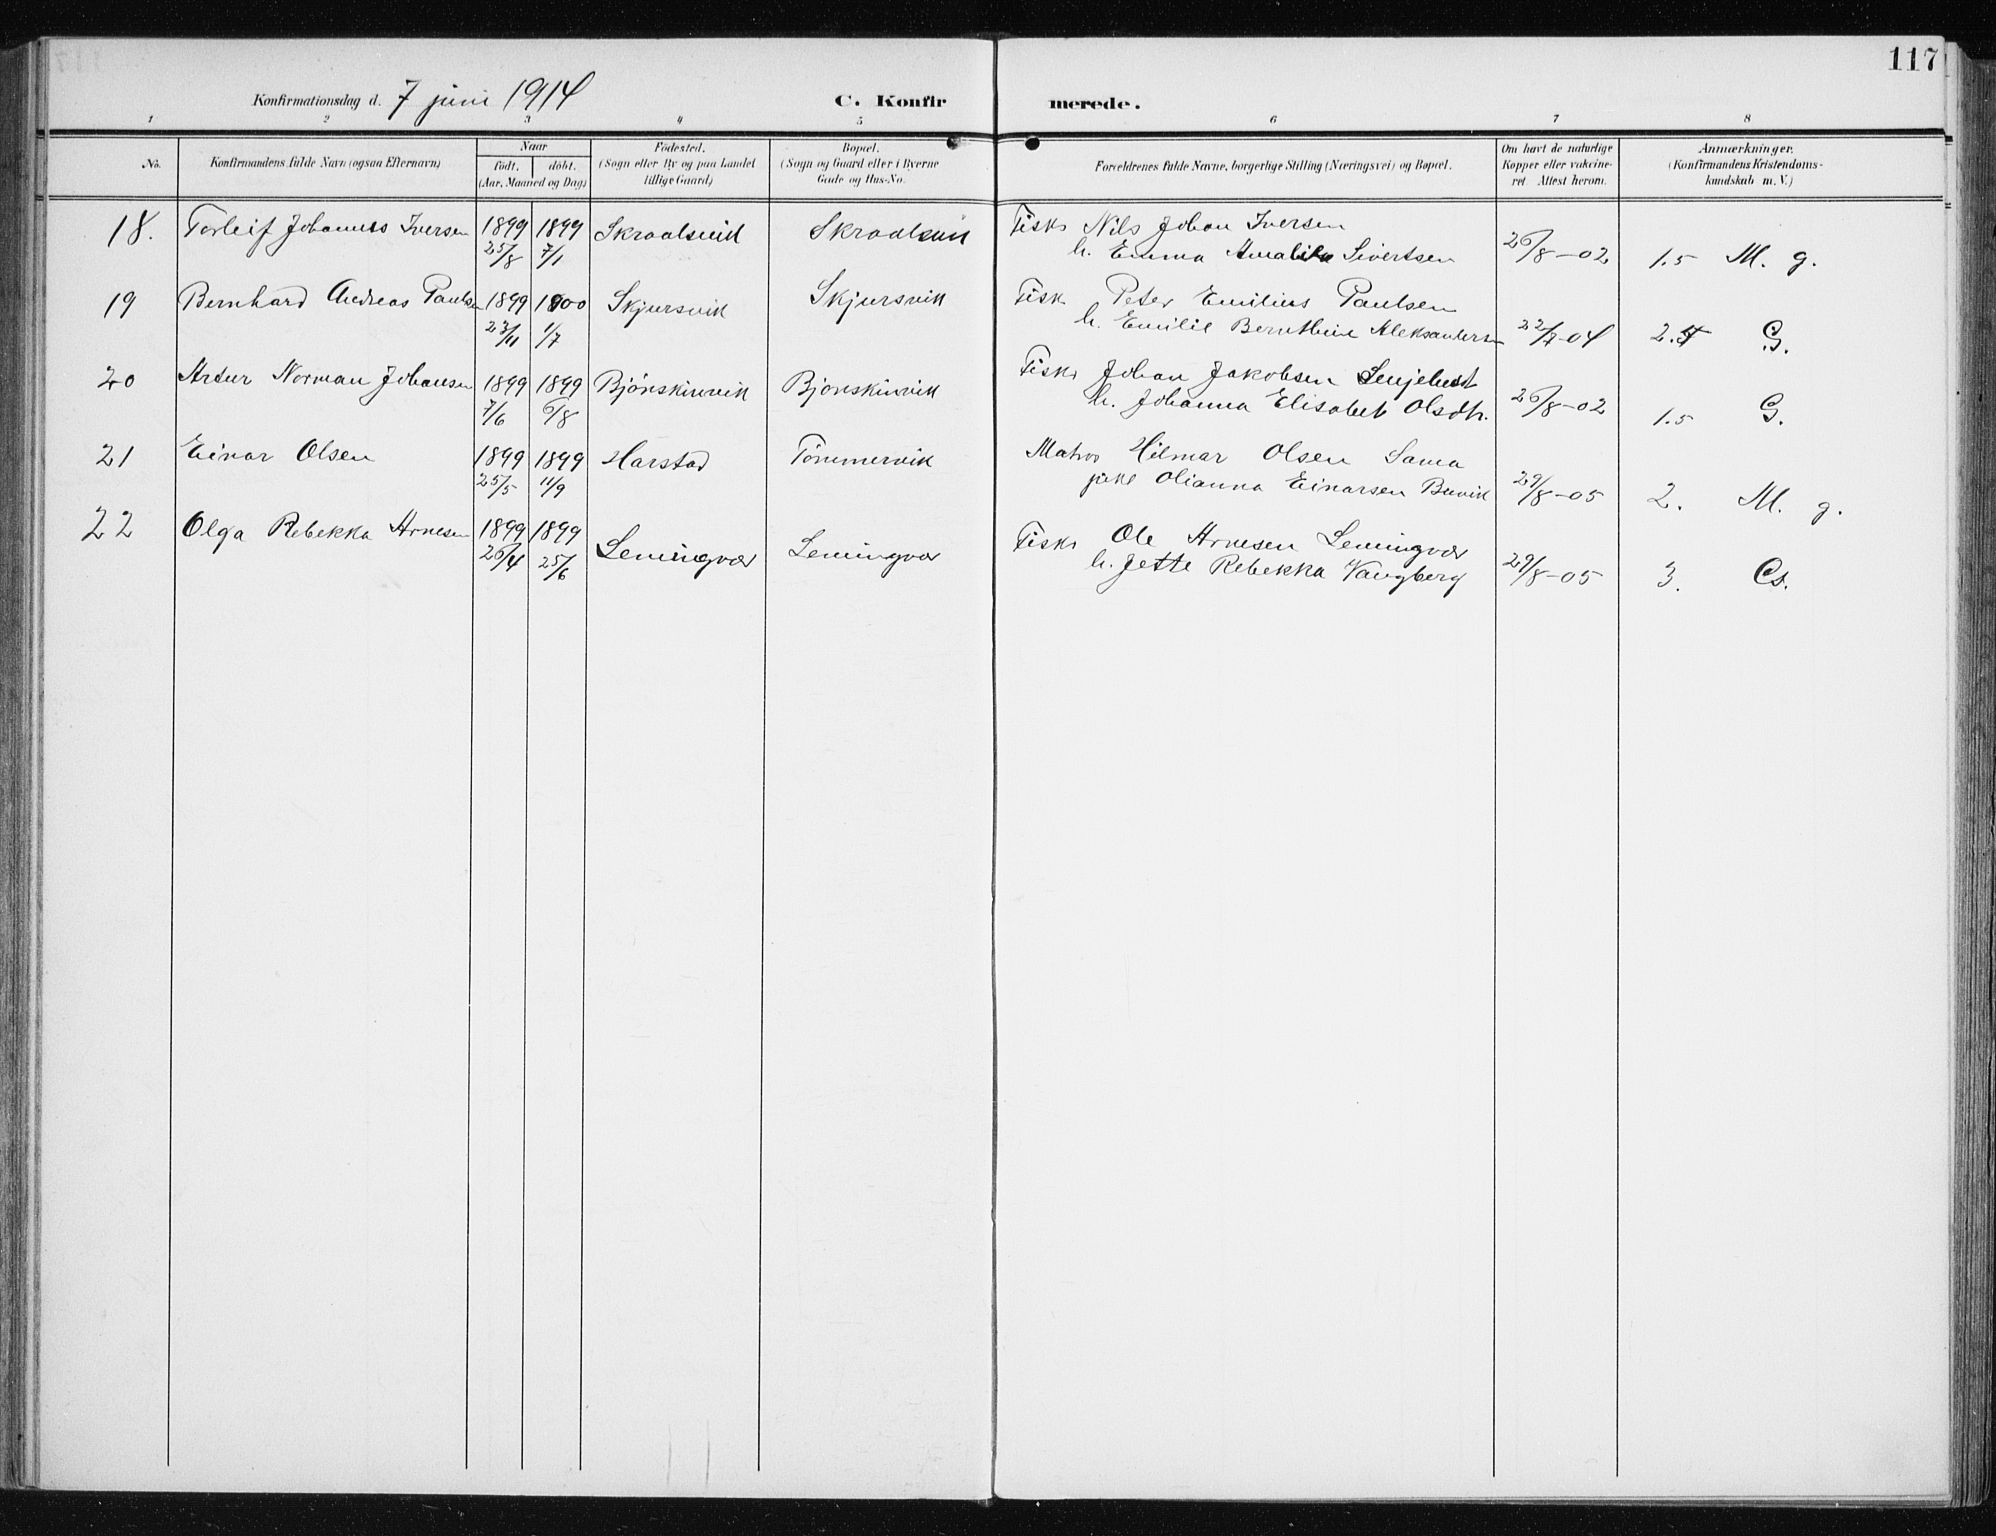 117
Konfirmationsdag d. 7 juni 1914 C. Konfirmerede.
1 2 3 4 5 6 7 8
No. Konfirmandens fulde Navn (ogsaa Efternavn) Naar födt. döbt. (Aar, Maaned og Dag) Födested. (Sogn eller By og paa Landet tillige Gaard) Bopæl. (Sogn og Gaard eller i Byerne Gade og Hus-No. Forældrenes fulde Navne, borgerlige Stilling (Næringsvei) og Bopæl. Om havt de naturlige Kopper eller vakcineret. Attest herom. Anmærkninger. (Konfirmandens Kristendomskundskab m. V.)
18. Torleif Johannes Iversen 1899 1899 Skraalsvik Skraalsvik Fiskr Nils Johan Iversen
25/8 7/1 h. Emma Amalie Sivertsen 26/8-02 1.5 M. g.
19 Bernhard Andreas Paulsen 1899 1800 Skjursvik Skjursvik Fiskr Peter Emilius Paulsen
23/11 1/7 h. Emilie Bernthine Aleksandersen 22/7-04 G.
20 Artur Norman Johansen 1899 1899 Bjönskinvik Bjonskinvik Fiskr Johan Jakobsen Senjehest
7/6 6/8 h. Johanna Elisabet Olsdtr. 26/8-02 1.5 G.
21 Einar Olsen 1899 1899 Harstad Tömmervik Matros Hilmar Olsen Sama
25/5 11/9 pike Olianna Einarsen Buvik 29/8-05 2. M. g.
22 Olga Rebekka Arnesen 1899 1899 Lemingvær Lemingvær Fiskr Ole Arnesen Lemingvær
26/4 25/6 h. Jette Rebekka Vangberg 29/8-05 3.